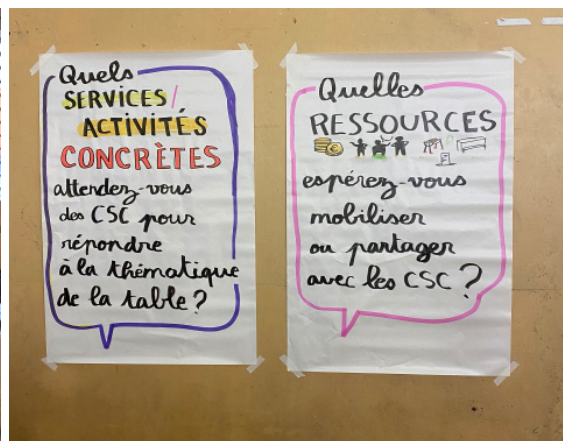 Quels
SERVICES/
ACTIVITÉS
CONCRÈTES
attendez-vous
des CSC pour
répondre
à la thématique
de la table ?
Quelles
RESSOURCES
espérez-vous
mobiliser
ou partager
avec les CSC ?